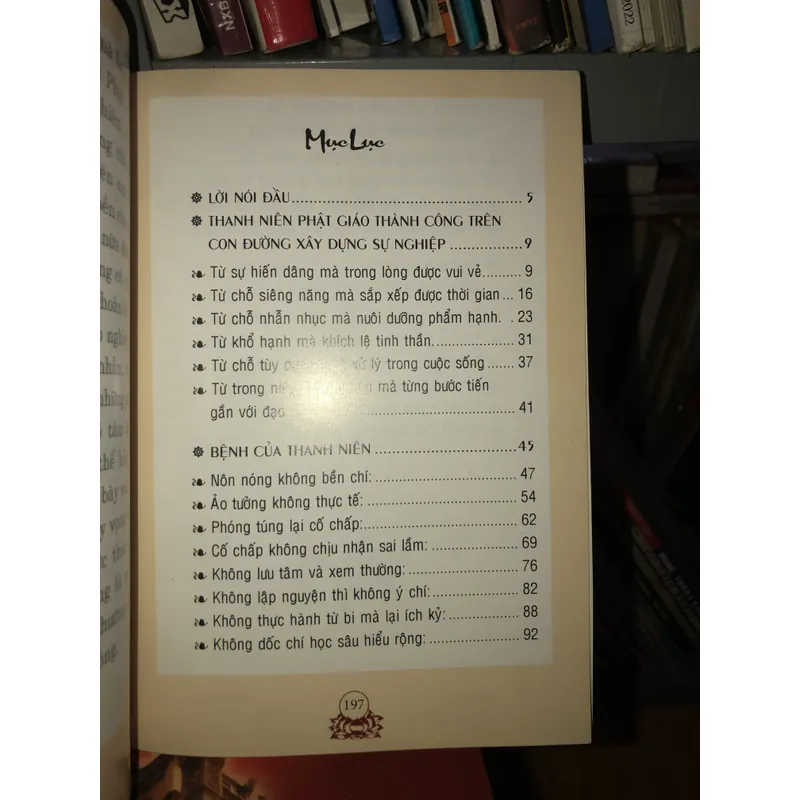 Mục Lục
LỜI NÓI ĐẦU 5
THANH NIÊN PHẬT GIÁO THÀNH CÔNG TRÊN
CON ĐƯỜNG XÂY DỰNG SỰ NGHIỆP 9
Từ sự hiến dâng mà trong lòng được vui vẻ 9
Từ chỗ siêng năng mà sắp xếp được thời gian 16
Từ chỗ nhẫn nhục mà nuôi dưỡng phẩm hạnh. 23
Từ khổ hạnh mà khích lệ tinh thần. 31
Từ chỗ tùy xử lý trong cuộc sống 37
Từ trong mà từng bước tiến
gần với đạo 41
BỆNH CỦA THANH NIÊN 45
Nôn nóng không bền chí: 47
Ảo tưởng không thực tế: 54
Phóng túng lại cố chấp: 62
Cố chấp không chịu nhận sai lầm: 69
Không lưu tâm và xem thường: 76
Không lập nguyện thì không ý chí: 82
Không thực hành từ bi mà lại ích kỷ: 88
Không dốc chí học sâu hiểu rộng: 92
197